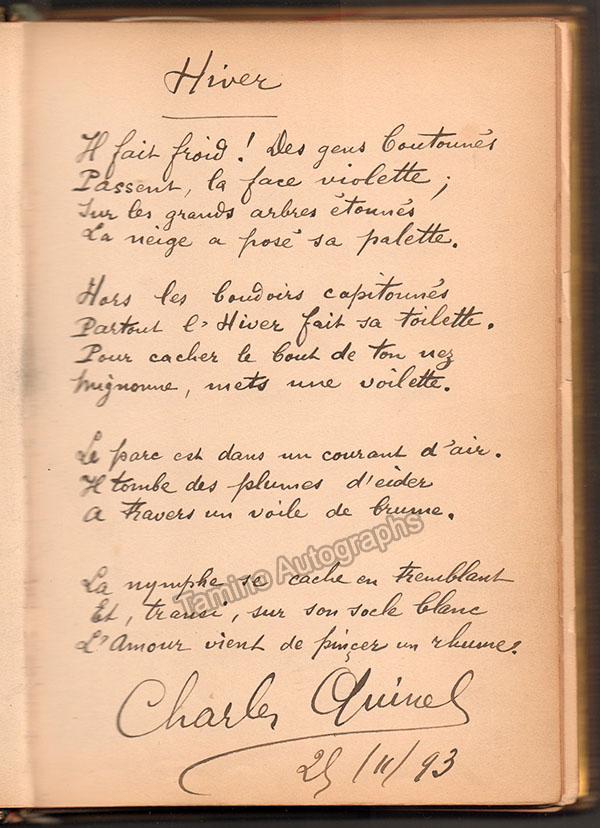 Hiver
Il fait froid ! Des gens boutonnés
Passent, la face violette ;
Sur les grands arbres étonnés
La neige a posé sa palette.
Hors les boudoirs capitonnés
Partout l'Hiver fait sa toilette.
Pour cacher le bout de ton nez
Mignonne, mets une voilette.
Le parc est dans un courant d'air.
Il tombe des plumes d'eider
A travers un voile de brume.
La nymphe se cache en tremblant
Et, transi, sur son socle blanc
L'Amour vient de pinçer un rhume.
Charles Quinel
25/11/93
Tamino Autographs